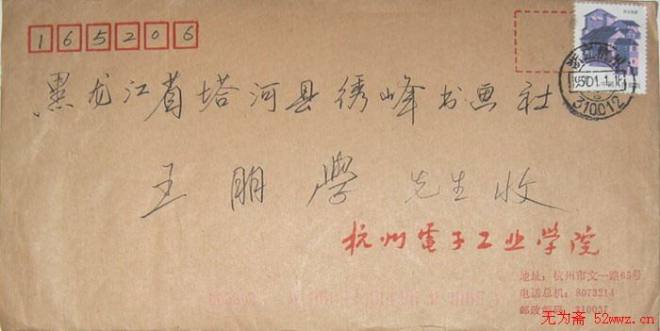 165206
黑龙江省塔河县绣峰书画社
310012
王朋學 先生收
杭州電子工业学院
地址：杭州市文一路65号
电话总机：8073214
邮政编码：310037
无为斋 52wwz.cn